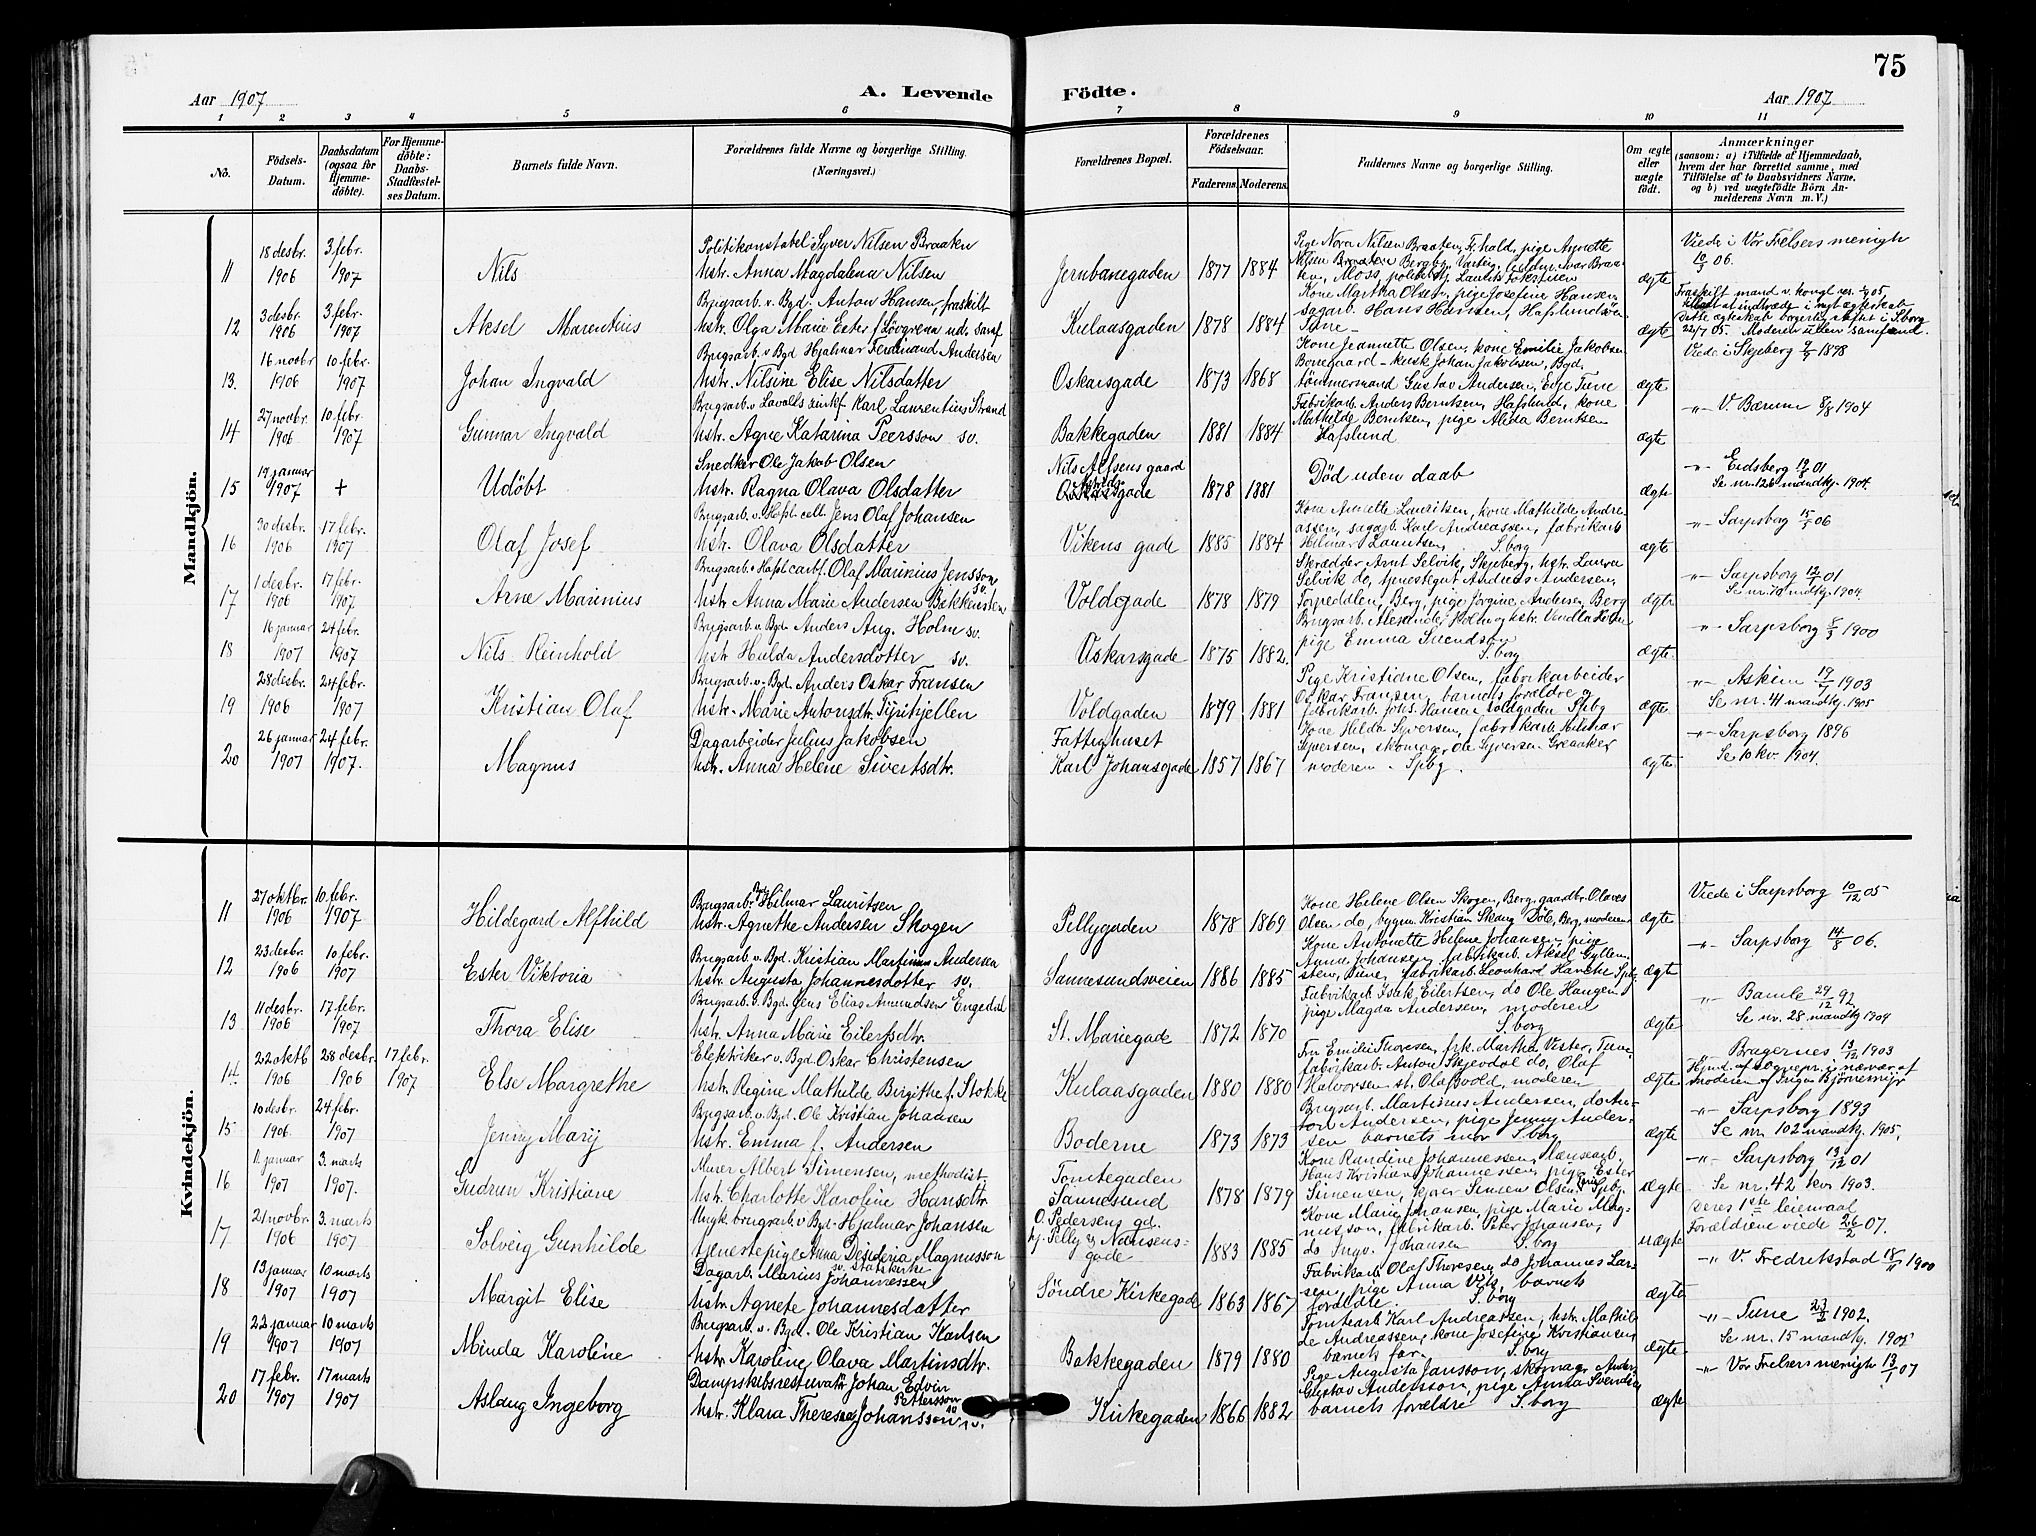 75
Aar 1907 A. Levende Födte. Aar 1907
1 2 3 4 5 6 7 8 9 10 11
No. Födsels-Datum. Daabsdatum (ogsaa for Hjemme-döbte). For Hjemme-döbte: Daabs-Stadfæstel-ses Datum. Barnets fulde Navn. Forældrenes fulde Navne og borgerlige Stilling. (Næringsvei.) Forældrenes Bopæl. Forældrenes Födselsaar. Faderens. Moderens. Faddernes Navne og borgerlige Stilling. Om ægte eller uægte födt. Anmærkninger (saasom: a) i Tilfælde af Hjemmedaab, hvem der har forrettet samme, med Tilföielse af to Daabsvidners Navne. og b) ved uægtefödte Börn An-melderens Navn m. V.)
Mandkjön.
11 18 desbr. 1906 3 febr. 1907 Nils Politikonstabel Syver Nilsen Braaten
hstr. Anna Magdalena Nilsen Jernbanegaden 1877 1884 ægte Viede i Vor Frelsers menigh 10/3 06.
12 3 desbr. 1906 3 febr. 1907 Aksel Marentius Brugsarb. v. Bgd. Anton Hansen, fraskilt
hstr. Olga Marie Ester f. Lövgrenn udr. samf Kulaasgaden 1878 1884 Kone Martha Olsen, pige Josefine Hansen
sagarb. Hans Hansen, Hafslundsöen
Tune ægte 22/7 05. Moderen uden samfund.
13. 16 novbr 1906 10 febr. 1907 Johan Ingvald Brugsarb. v Bgd Hjalmar Ferdinand Andersen
hstr. Nilsine Elise Nilsdatter Oskarsgade 1873 1868 Kone Jeannette Olsen, kone Emilie Jakobsen
Borregaard - kusk Johan Jakobsen, Bgd.
tömmermand Gustav Andersen, Eije Tune ægte Viede i Skjeberg 1898
14 27 novbr. 1906 10 febr. 1907 Gunnar Ingvald Karl Laurentius Strand
hstr. Agne Katarina Peersson sv. Bakkegaden 1881 1884 Fabrikarb. Anders Berntsen, Hafslund, kone
Mathilde Berntsen, pige Alida Berntsen
Hafslund ægte -"- V. Bærum 8/8 1904
15 19 januar 1907 + Udöbt Snedker Ole Jakob Olsen
hstr. Ragna Olava Olsdatter Nils Alfsens gaard 1878 1881 Död uden daab ægte -"- Eidsberg 01
Se nr. 126 mandkj. 1904.
16 30 desbr. 1906 17 febr. 1907 Olaf Josef Brugsarb. v. Hafsl cell. Jens Olaf Johansen
hstr. Olava Olsdatter Vikens gade 1885 1884 Kone Annette Lauritsen, kone Mathilde Andre-
assen, sagarb. Karl Andreassen, fabrikarb
Hilmar Lauritsen, S.borg ægte -"- Sarpsborg 06
17 1 desbr. 1906 17 febr. 1907 Arne Marinius Olaf Marinius Jensson sv.
hstr Anna Marie Andersen Bakkensten Voldgade 1878 1879 Skrædder Arnt Selvik, Skjeberg, hstr. Laura
Selvik do, tjenestegut Andreas Andersen,
Torpeddlen, Berg, pige Jörgine Andersen, Berg ægte -"- Sarpsborg 12/1 01
18 16 januar 1907 24 febr. 1907 Nils Reinhold Brugsarb. v. Bgd. Anders Aug. Holm sv.
hstr Hulda Andersdotter sv. Oskarsgade 1875 1882.
pige Emma Svendson S.borg ægte. -"- Sarpsborg 1900
19 28 desbr. 1906 24 febr. 1907 Kristian Olaf Brugsarb. v. Bgd. Anders Oskar Fransen
hstr. Marie Antonsdtr. Tyritjellen Voldgaden 1879 1881 Pige Kristiane Olsen, fabrikarbeider
Oskar Fransen, barnets forældre o
fabrikarb. Johs. Hansen Voldgaden Spbg ægte. -"- Askim 19/7 1903
Se nr. 41 mandkj. 1905
20 26 januar 1907 24 febr. 1907. Magnus Dagarbeider Julius Jakobsen
hstr. Anna Helene Sivertsdtr. Fattighuset
Karl Johansgade 1857 1867 Kone Hilda Syversen, fabrikarb. Hilmar
Syversen, skomager Ole Syversen Greaaker
moderen - Spbg. ægte. -"- Sarpsborg 1896
Se 10 kv. 1904.
Kvindekjön.
11 27 oktbr. 1906 10 febr. 1907 Hildegard Alfhild Brugsarb. Bgd Hilmar Lauritsen
hstr. Agnethe Andersen Skogen Pellygaden 1878 1869 Kone Helene Olsen Skogen, Berg, gaardbr. Olaves
Olsen do, bygm. Kristian Skaug Döle, Berg, moderen ægte Viede i Sarpsborg 10/12 05
12 23 desbr. 1906 10 febr. 1907 Ester Viktoria Brugsarb. v. Bgd. Kristian Martinius Andersen
hstr. Augusta Johannesdotter sv. Sannesundsveien 1886 1885 Kone Antonette Helene Johansen, pige
Anna Johansen, fabrikarb. Aksel Gyllen-
sten, Tune, fabrikarb. Leonhard Hanche Spbg ægte -"- Sarpsborg 14/8 06.
13 11 desbr. 1906 17 febr. 1907 Thora Elise Brugsarb. v. Bgd. Jens Elias Amundsen Engedal
hstr. Anna Marie Eilertsdtr. St. Mariegade 1872 1870 Fabrikarb Isak Eilertsen, do Ole Haugen,
pige Magda Andersen, moderen
S.borg ægte -"- Bamle 29/12 92
Se nr. 28 mandkj 1904
14. 22 oktb 1906 28 desbr. 1906 17 febr. 1907 Else Margrethe Elektriker v. Bgd. Oskar Christensen
hstr. Regine Mathilde Birgithe f. Stokke Kulaasgaden 1880 1880 Fru Emilie Thoresen, frk. Martha Vister, Tune
fabrikarb. Anton Skjevdal do, Olaf
Halvorsen st. Olafsvold, moderen ægte -"- Bragernes 13/12 1903
15 10 desbr. 1906 24 febr. 1907 Jenny Marij Brugsarb. v. Bgd. Ole Kristian Johansen
hstr. Emma f. Andersen Boderne 1873 1873 Brugsarb. Martinus Andersen, do An-
ton Andersen, pige Jenny Ander-
sen barnets mor S.borg ægte -"- Sarpsborg 1893
Se nr 102 mandkj. 1905.
16 11 januar 1907 3. marts 1907. Gudrun Kristiane Murer Albert Simensen, methodist
hstr. Charlotte Karoline Hansdtr. Tomtegaden
Sannesund 1878 1879 Kone Randine Johannessen, 
Hans Kristian Johannessen, pige Ester
Simensen, ægte -"- Sarpsborg 13/12 01
Se nr. 42 kv. 1903.
17 21 novbr. 1906 3. marts 1907 Solveig Gunhilde Ungk. brugsarb. v Bgd. Hjalmar Johansen
tjenestepige Anna Desideria Magnusson
sv. statskirke O. Pedersens gd.
hj. Pelly & Nansens-
gade 1883 1885 Kone Marie Johansen, pige Marie Mag-
nusson, fabrikarb. Peter Johansen,
do Ingv. Johansen S.borg uægte Deres 1ste leiermaal
Forældrene viede 26/2 07.
18 13 januar 1907 10 marts 1907 Margit Elise Dagarb. Marius Johannessen
hstr. Agnete Johannesdatter Söndre Kirkegade 1863 1867 Fabrikarb. Olaf Thoresen, do Johannes Lar-
sen, pige Anna Vik, barnets
forældre S.borg ægte -"- V. Fredrikstad 18/11 1900
19 22 januar 1907 10 marts 1907 Minda Karoline Brugsarb. v. Bgd. Ole Kristian Karlsen
hstr. Karoline Olava Martinsdtr. Bakkegaden 1879 1880 Tomtearb. Karl Andreassen, hstr. Mathil-
de Andreassen, kone Josefine Kristiansen,
barnets far. S.borg ægte -"- Tune 1902.
Se nr. 15 mandkj. 1905
20 17 febr. 1907 17 marts 1907 Aslaug Ingeborg Dampskibsresturatör Johan Edvin
Pettersson sv
hstr. Klara Theresia Johansson sv. Kirkegaden 1866 1882 Pige Augusta Jansson, skomag. Anders
Gustav Andersson, pige Anna Svendsen
barnets forældre S.borg ægte -"- Vor Frelsers menigh 13/1 07